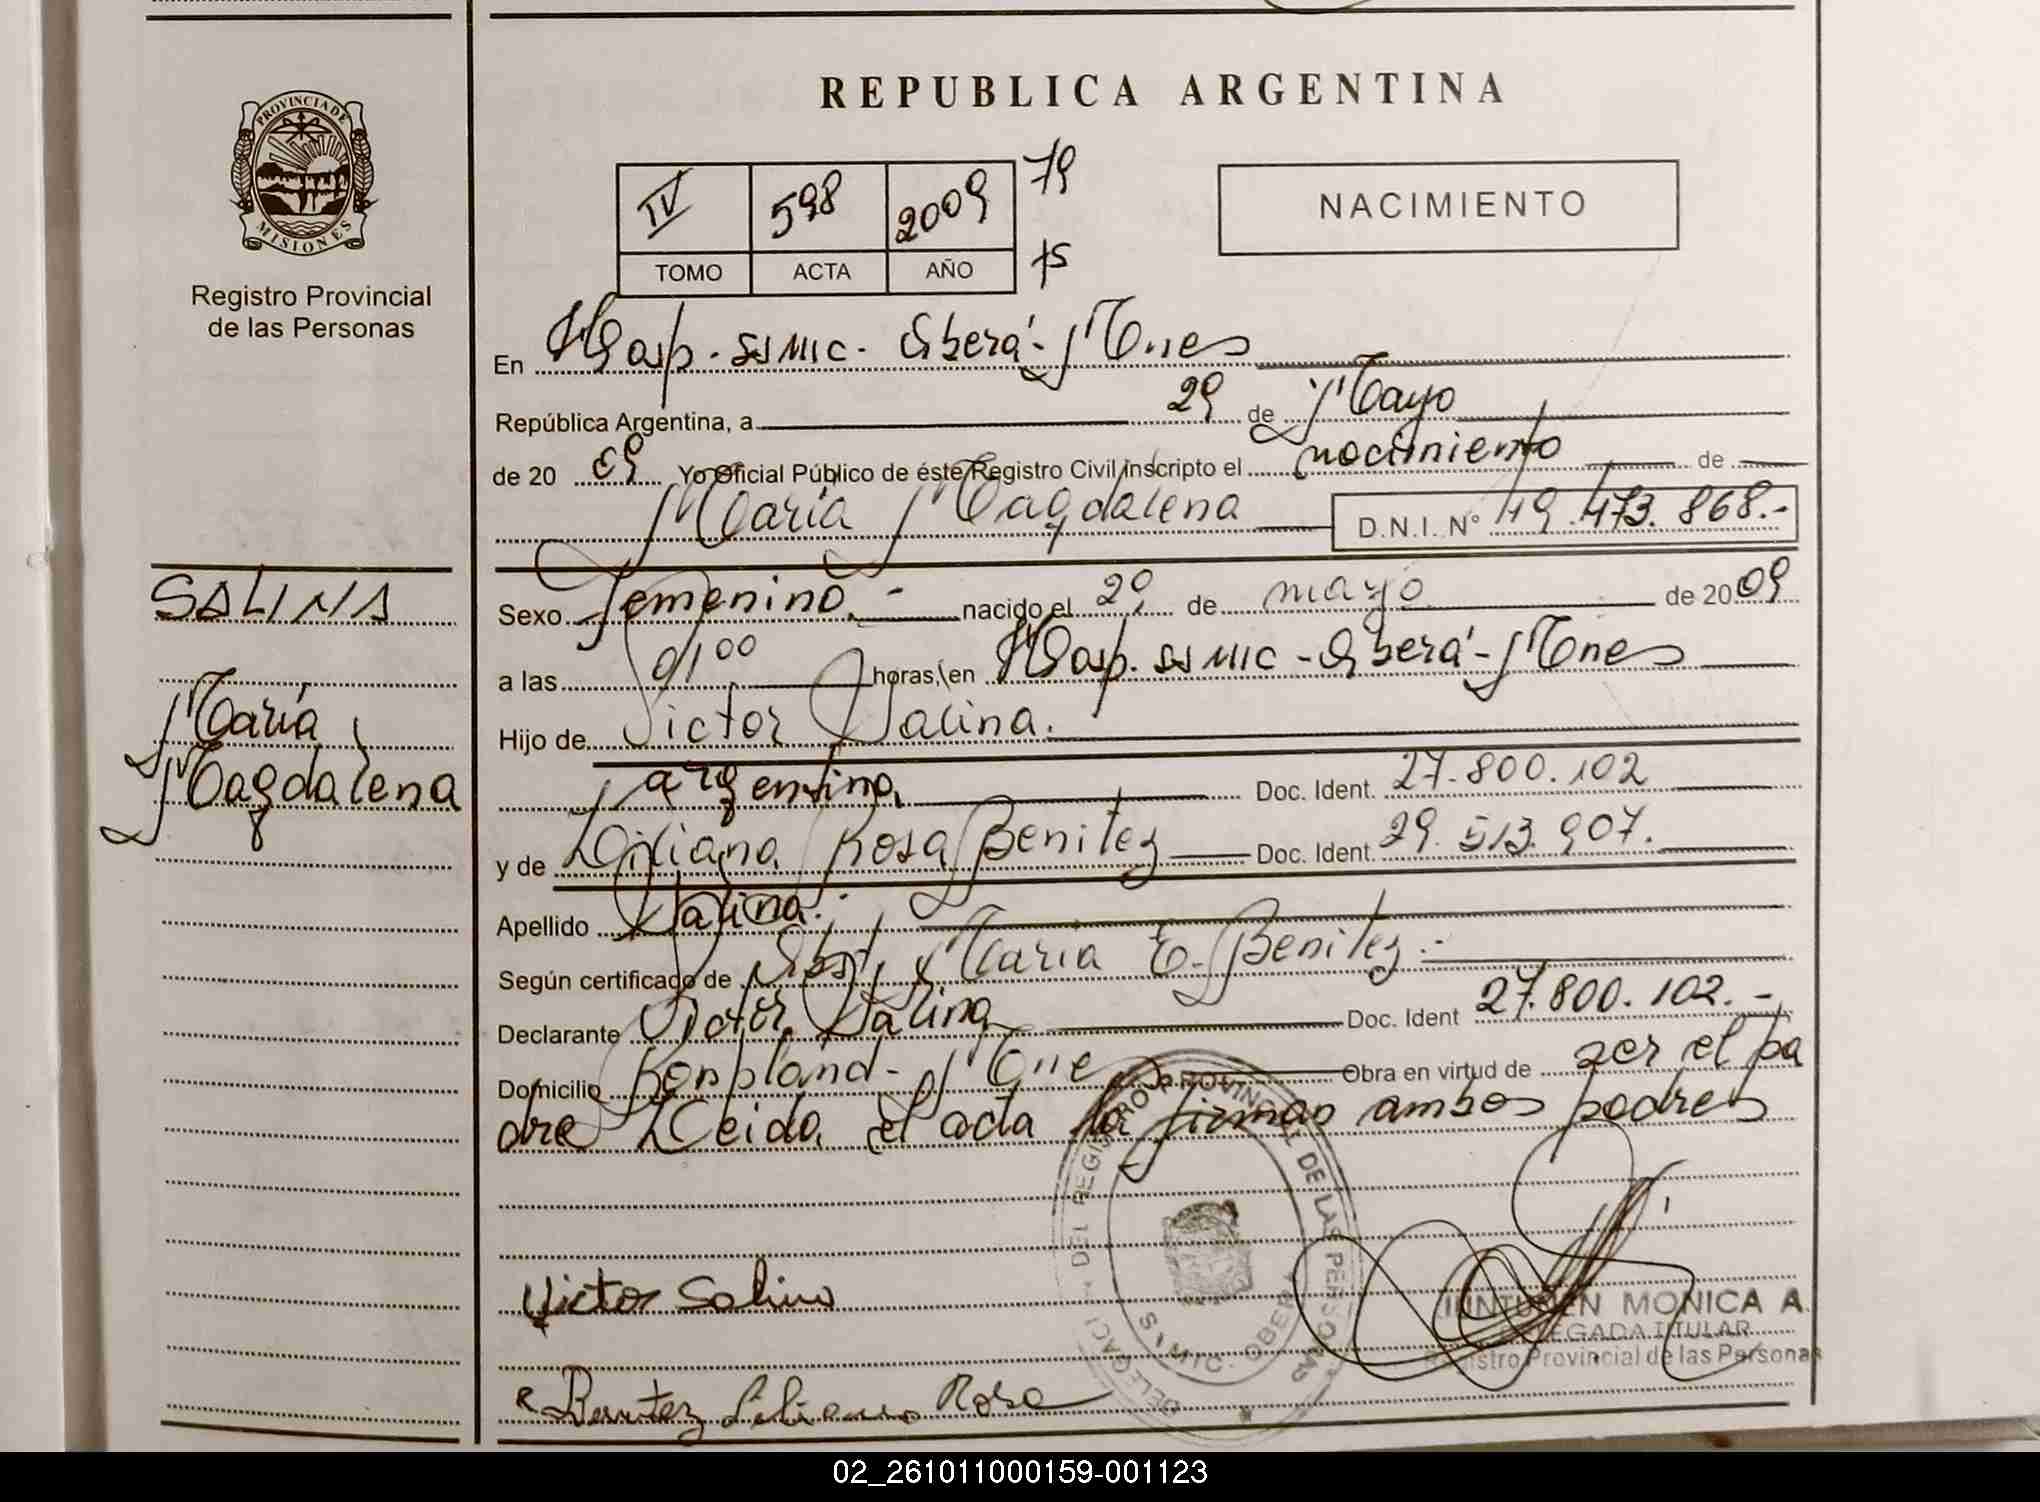 REPUBLICA ARGENTINA
PROVINCIA DE
MISIONES
Registro Provincial
de las Personas
IV 598 2009 79
TOMO ACTA AÑO 75
NACIMIENTO
En Hosp. SSMIC. Oberá - Mnes
República Argentina, a 29 de Mayo
de 20 09 Yo Oficial Público de éste Registro Civil inscripto el nacimiento de
María Magdalena D.N.I. N° 49.473.868.-
SALINA
María
Magdalena
Sexo Femenino.- nacido el 29 de mayo de 2009
a las 01 00 horas, en Hosp. SSMIC - Oberá - Mnes
Hijo de Victor Salina.
argentino, Doc. Ident. 27.800.102
y de Liliana Rosa Benitez Doc. Ident. 29.513.907.
Apellido Salina.-
Según certificado de Obst. Maria E. Benitez.-
Declarante Victor Salina Doc. Ident 27.800.102.-
Domicilio Bonpland - Mnes Obra en virtud de ser el pa
dre Leida el acta la firman ambos padres
DELEGACI DEL REGISTRO PROVINCIAL DE LAS PERSONAS
S.M.I.C. OBERA
Victor Salina
Benitez Liliana Rosa
MONICA A.
DELEGADA TITULAR
Registro Provincial de las Personas
02_261011000159-001123